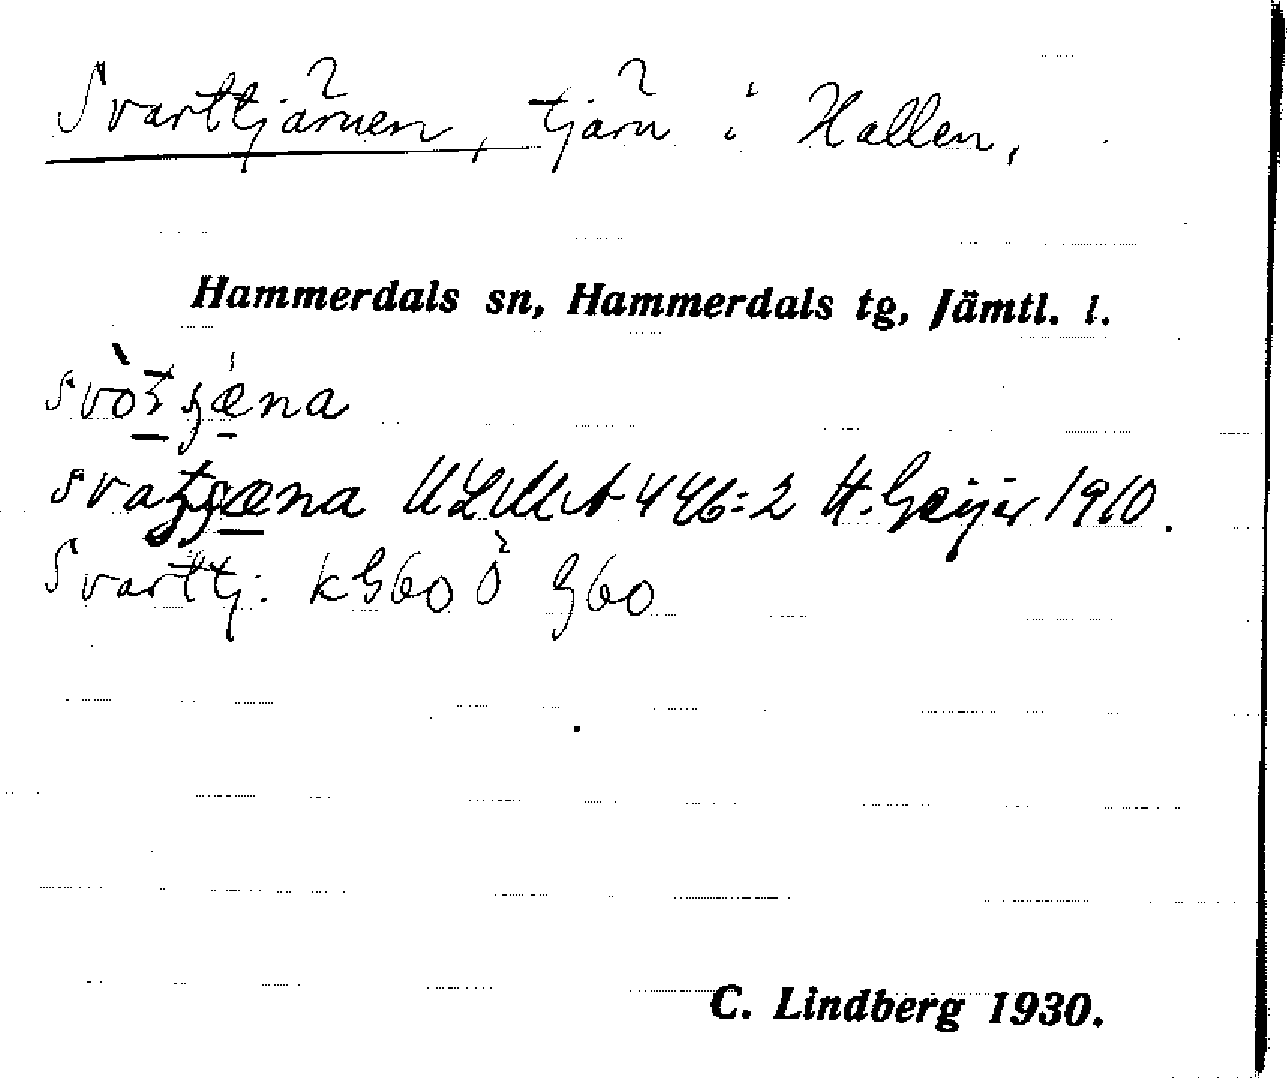 Svarttjärnen, tjärn i Hallen,
Hammerdals sn, Hammerdals tg, Jämtl. l.
ULMA 446:2 H. Geijer 1910.
Svarttj. kG60 Ö G60
C. Lindberg 1930.